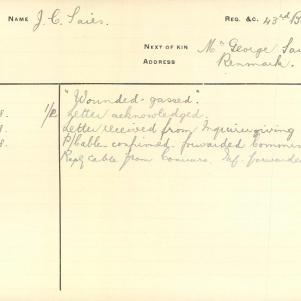 NAME J. C. Saies. REG. &C. 43rd B
NEXT OF KIN Mr George Sai
ADDRESS Renmark.
"Wounded-gassed."
8. 1/2 Letter acknowledged.
Letter received from Inquirer giving
8. P/Cable confirmed forwarded Commis
Reply cable from Convers. Inf. forwarde